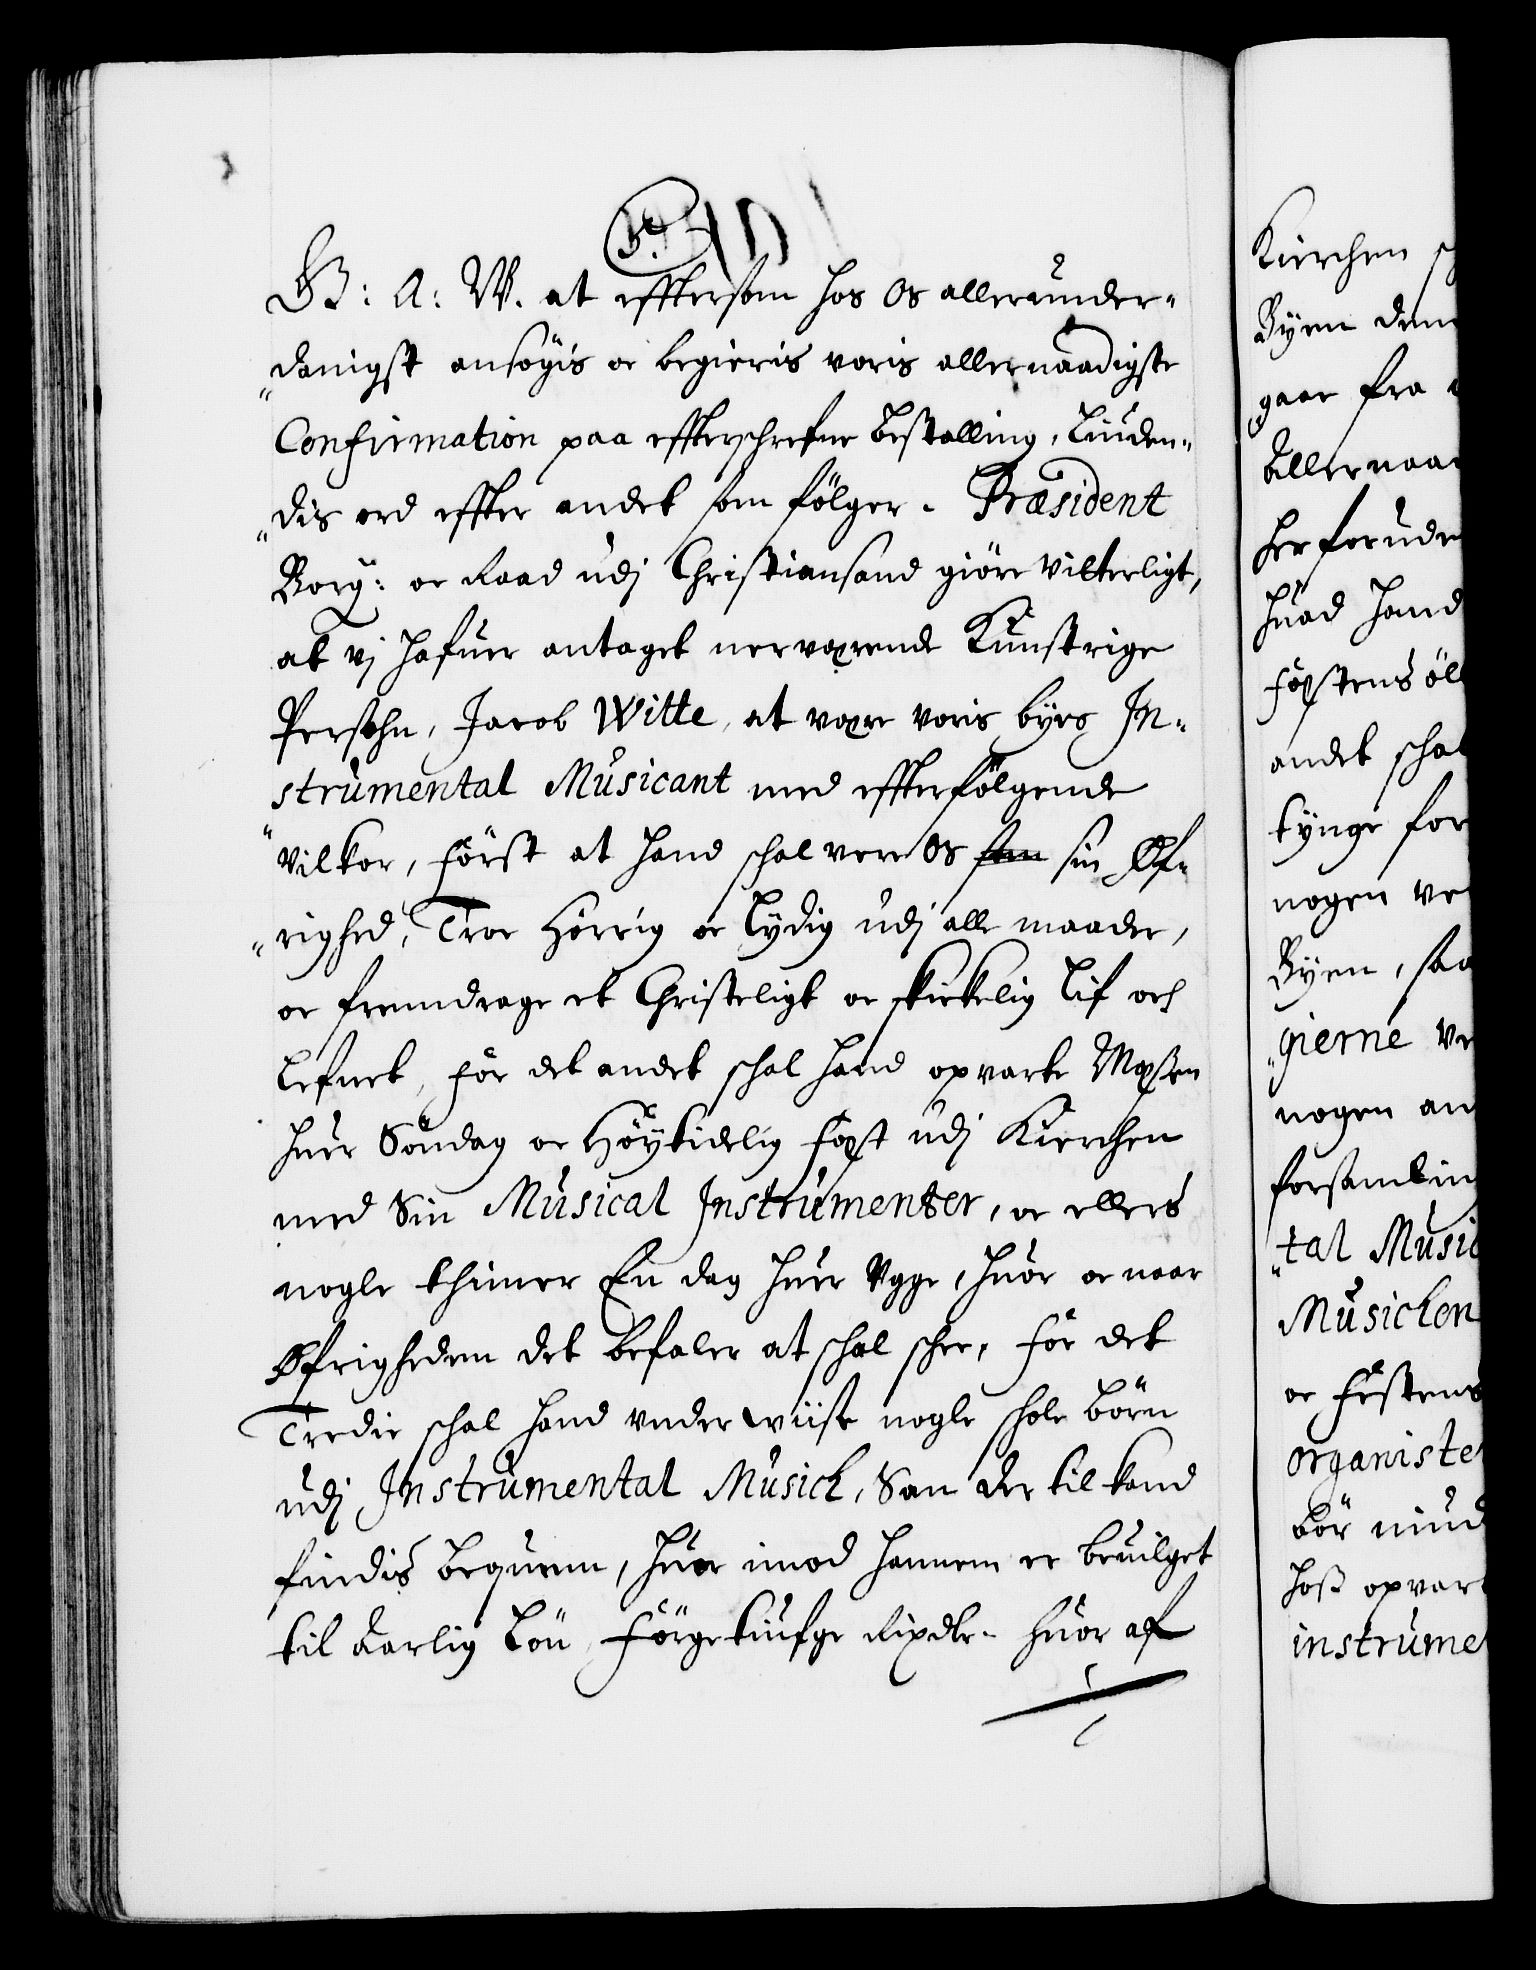 G: A: W. at effterſom hos Os allerunder-
danigſt anſögis oc begieris voris allernaadigſte
Confirmation paa effterſchrefne beſtalling, Liuden-
dis ord effter andet ſom fölger. Præsident
Borg: oc Raad udj Chriſtianſand giöre Vitterligt,
at vj hafuer antaget nerværende Kunſtrige
Perſohn, Jacob Witte, at være voris byes In-
strumental Musicant med effterfölgende
Vilkor, Förſt at hand ſchal vere Os ſom ſin Øf-
righed, Troe Hörrig oc Lydig udj alle maader,
oc fremdrage et Chriſteligt oc ſkickelig Lif och
Lefnet, För det andet ſchal hand opvarte Mæſſen
huer Söndag oc Höytidelig Fæſt udj Kierchen
med Sin Musical Instrumenter, oc ellers
nogle thimer En dag huer Vgge, huor oc naar
Øfrigheden det befaler at ſchal ſchee, För det
Tredie ſchal hand vnderwiiſe nogle ſchole Börn
udj Instrumental Musick, Som der til kand
findis bequem, huor imod hannem er bevilget
til Aarlig Lön, Förgetiufge Rixdlr. huor af
Kierchen
Byen
gaar fra
Allernaa
herforude
huad hand
Fæſtens öl
andet ſchal
tynge for
nogen ve
Byen, ſaa
gierne ve
nogen an
forſamlin
tal Music
Musicken
oc Feſtens
organiste
bör
hoß opvar
instrume